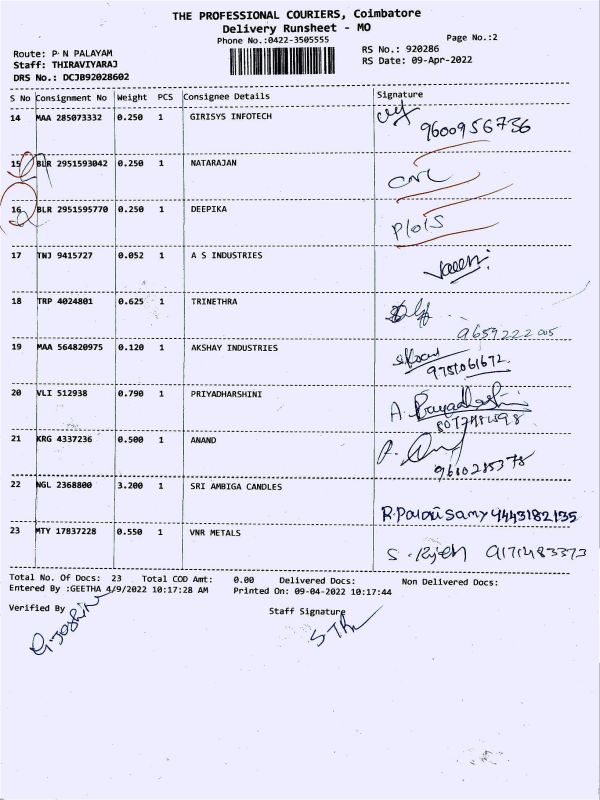 THE PROFESSIONAL COURIERS, Coimbatore
Delivery Runsheet - MO
Phone No.:0422-3505555
Page No.:2
Route: P N PALAYAM
RS No.: 920286
Staff: THIRAVIYARAJ
RS Date: 09-Apr-2022
DRS No.: DCJB92028602
S No Consignment No Weight PCS Consignee Details Signature
14 MAA 285073332 0.250 1 GIRISYS INFOTECH
9600956736
15 BLR 2951593042 0.250 1 NATARAJAN
CNL
16 BLR 2951595770 0.250 1 DEEPIKA
17 TNJ 9415727 0.052 1 A S INDUSTRIES
18 TRP 4024801 0.625 1 TRINETHRA
9659222005
19 MAA 564820975 0.120 1 AKSHAY INDUSTRIES
9751061672
20 VLI 512938 0.790 1 PRIYADHARSHINI
A. Priyadharshini
21 KRG 4337236 0.500 1 ANAND
22 NGL 2368800 3.200 1 SRI AMBIGA CANDLES
R.Palanisamy 9443182135
23 MTY 17837228 0.550 1 VNR METALS
S. Rajesh 9171483373
Total No. Of Docs: 23 Total COD Amt: 0.00 Delivered Docs: Non Delivered Docs:
Entered By :GEETHA 4/9/2022 10:17:28 AM Printed On: 09-04-2022 10:17:44
Verified By Staff Signature